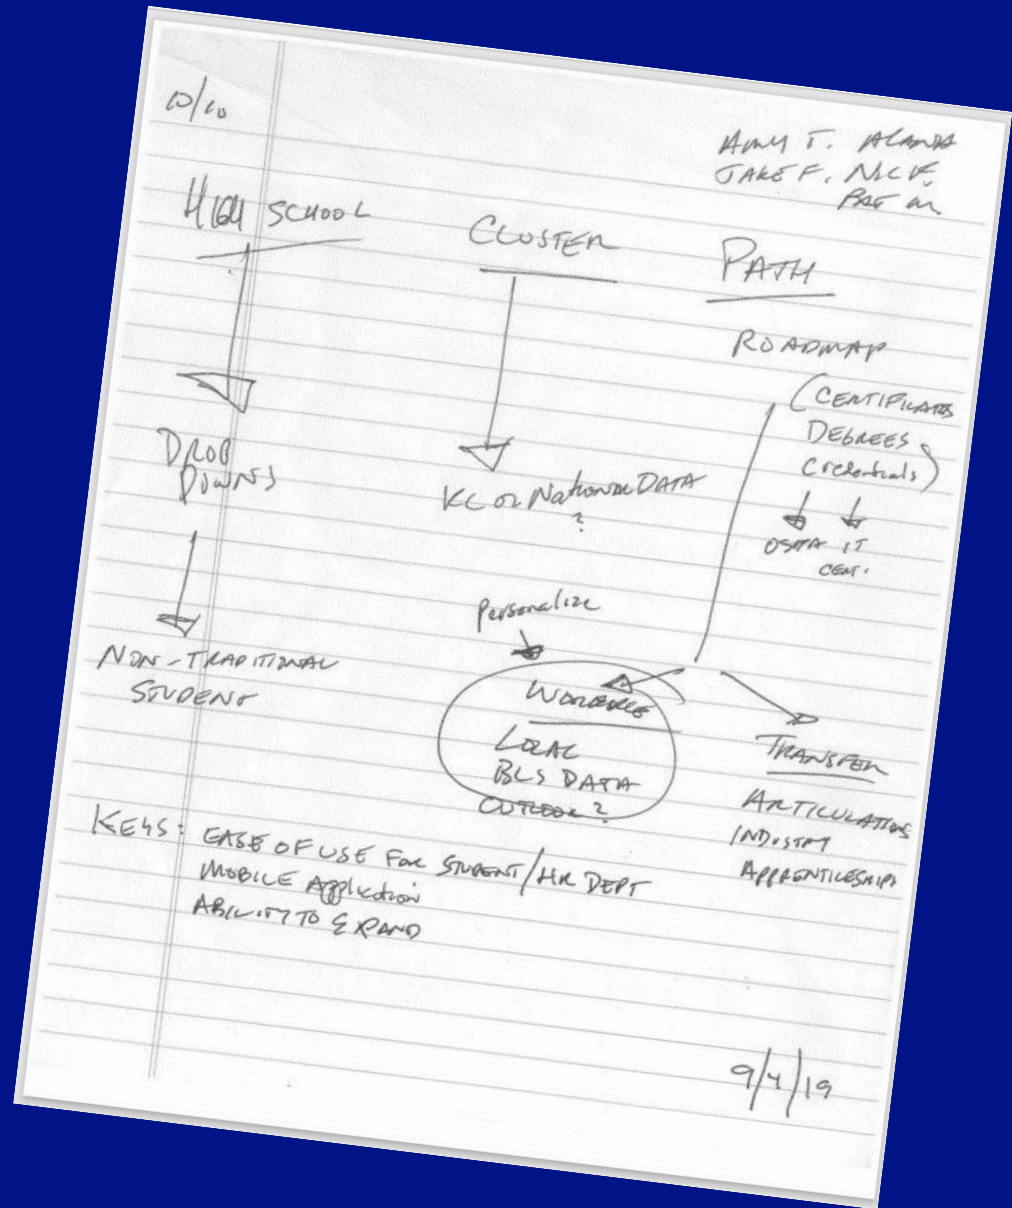 10/10
AMY T. AMANDA
JAKE F. NICK
PAT M
HIGH SCHOOL
CLUSTER
PATH
ROADMAP
(CERTIFICATES
DEGREES
Credentials)
DROP
DOWNS
KC or National DATA
?
OSHA IT
CERT.
Personalize
NON-TRADITIONAL
STUDENT
WORKFORCE
LOCAL
BLS DATA
OUTLOOK?
TRANSFER
ARTICULATIONS
INDUSTRY
APPRENTICESHIPS
KEYS: EASE OF USE FOR STUDENT/HR DEPT
MOBILE Application
ABILITY TO EXPAND
9/4/19